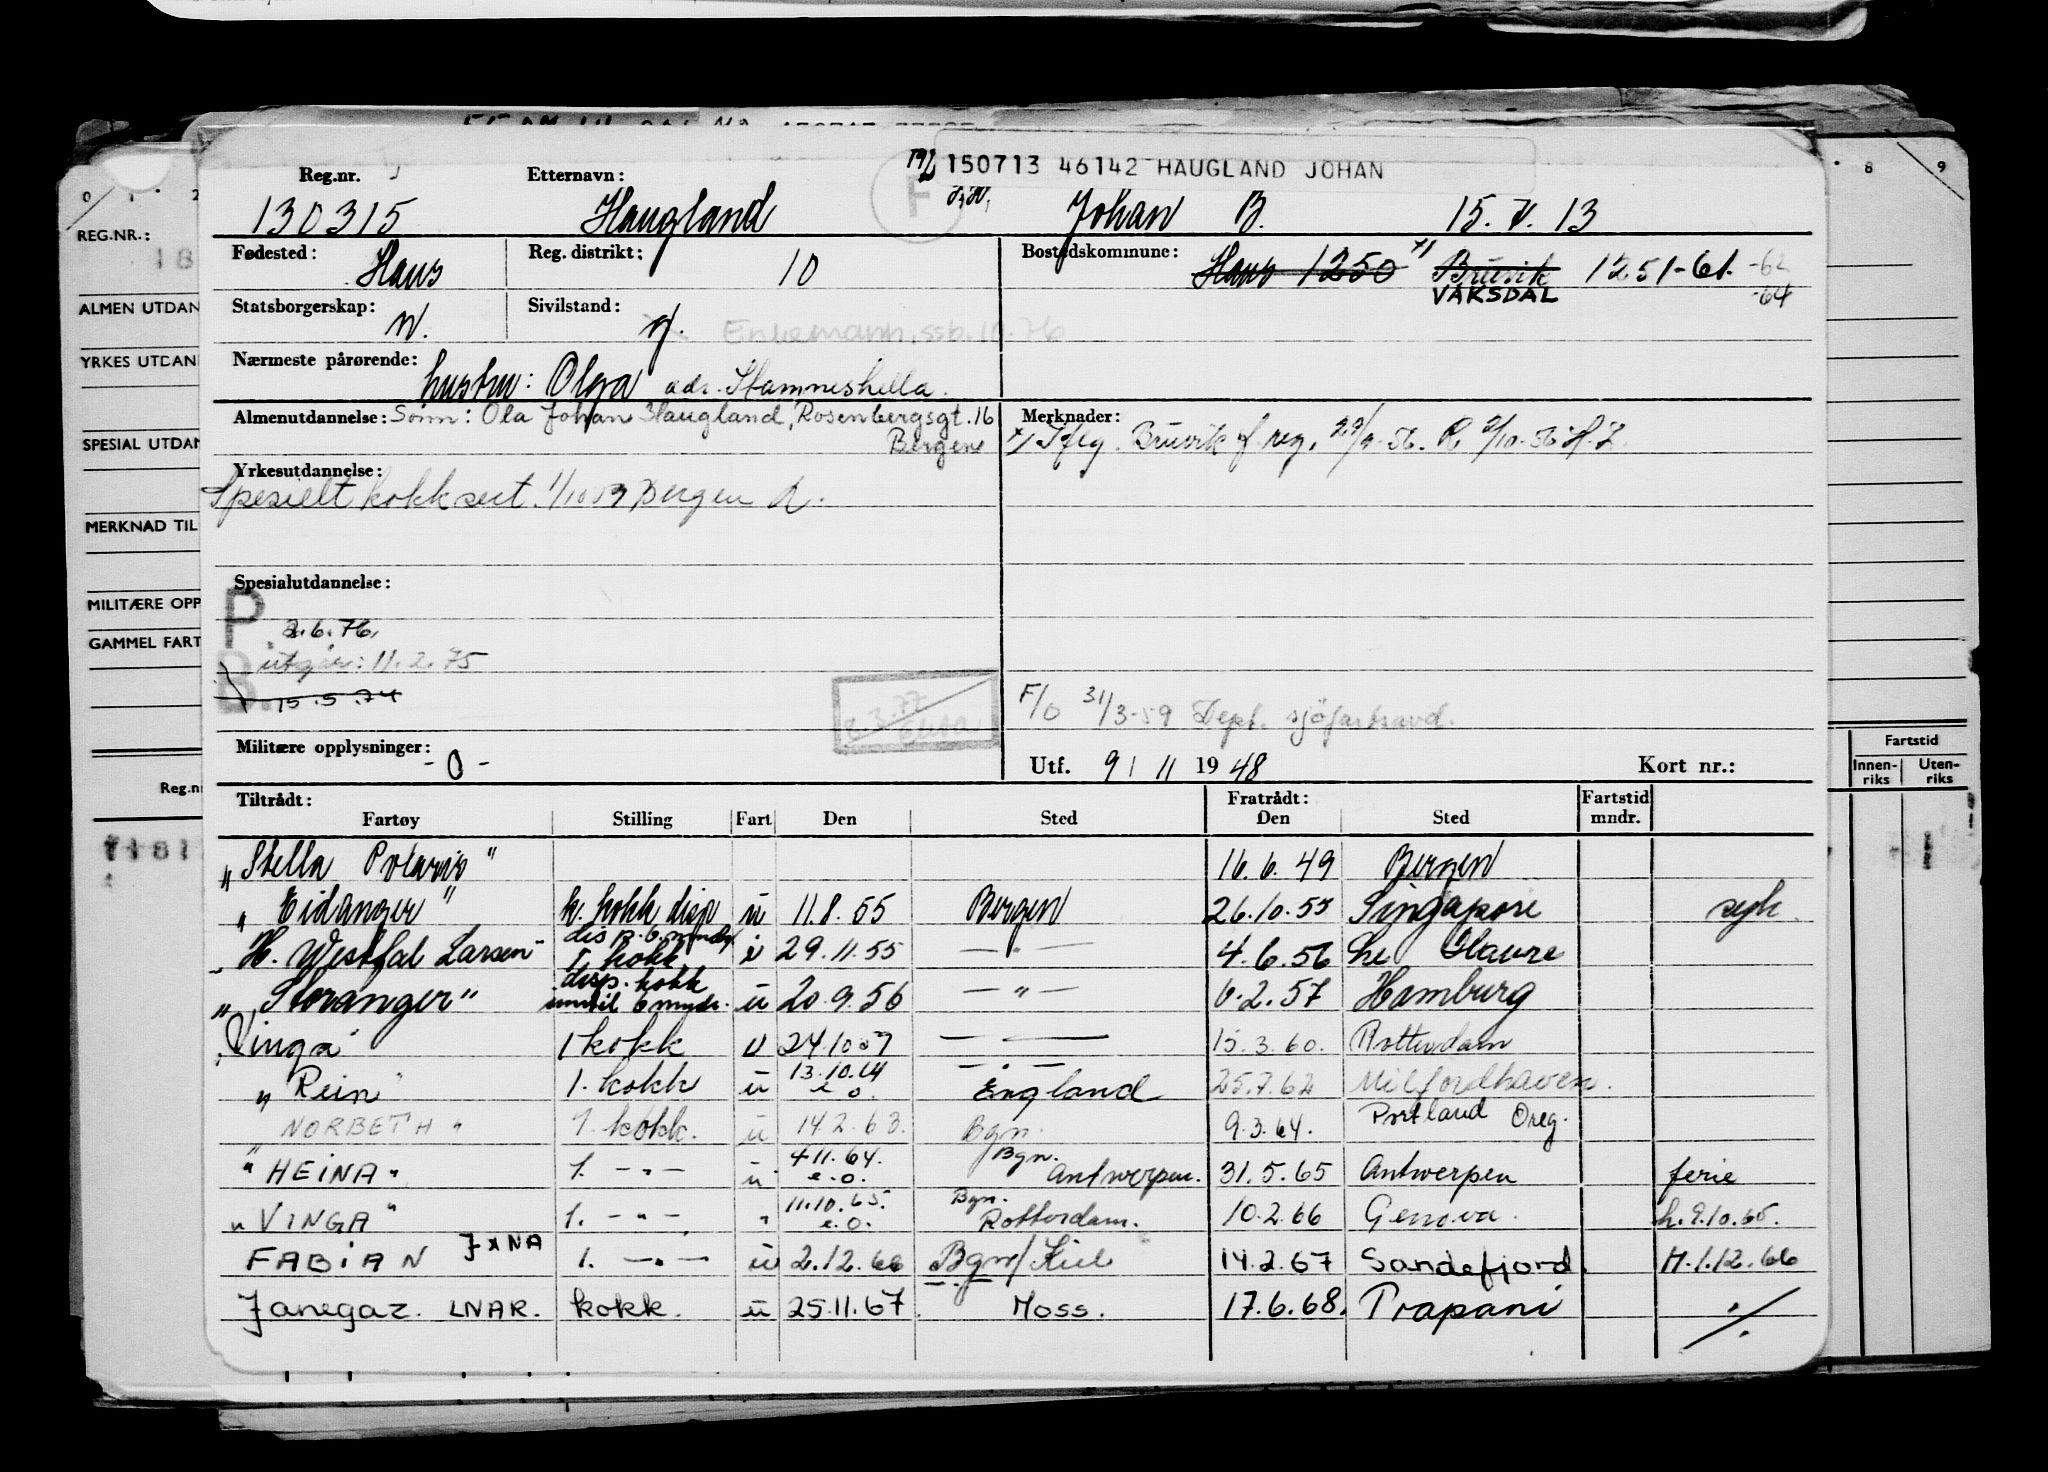 150713 46142 HAUGLAND JOHAN
Reg.nr. Etternavn: F
130315 Haugland Johan B. 15. V. 13
Fødested: Haus Reg. distrikt: 10 Bostedskommune: Haus 1250 x/ Bruvik 1251-61. -62
VAKSDAL -64
Statsborgerskap: N. Sivilstand: g. Enkemann, ssb. 10.76
Nærmeste pårørende: hustru: Olga adr. Stamneshella.
Almenutdannelse: Sønn: Ola Johan Haugland, Rosenbergsgt. 16
Bergen
Merknader:
x/ Iflg. Bruvik f. reg. 29/9-56. R. 2/10-56 H.L.
Yrkesutdannelse:
Spesielt kokk sert. 1/10 59 Bergen
Spesialutdannelse:
P. 2.6.76.
B. utgår: 11.2.75
15.5.74
F/O 31/3-59 Dept. sjøfartsavd.
Militære opplysninger: -0- Utf. 9/ 11 1948 Kort nr.:
Tiltrådt: Fratrådt: Fartstid
Fartøy Stilling Fart Den Sted Den Sted mndr.
"Stella Polaris" 16.6.49 Bergen
"Eidanger" k. kokk disp u 11.8.55 Bergen 26.10.55 Singapore syk.
"H. Westfal Larsen" dis p. 6 mndr. 1. kokk u 29.11.55 — " — 4.6.56 Le Havre
"Storanger" disp. kokk inntil 6 mndr. u 20.9.56 — " — 6.2.57 Hamburg
"Vinga" 1 kokk u 24.10.59 — " — 15.3.60. Rotterdam
"Rein" 1. kokk u 13.10.61 e.o. — " — England 25.7.62 Milfordhaven.
"NORBETH" 1. kokk. u 14.2.63. Bgn. 9.3.64. Portland Oreg.
"HEINA" 1. — " — u 4.11.64. e.o. Bgn. Antwerpen. 31.5.65 Antwerpen ferie
"VINGA" 1. — " — " 11.10.65. e.o. Bgn. Rotterdam. 10.2.66 Genova. h. 9.10.65.
FABIAN JXNA 1. — " — u 2.12.66 Bgn/Kiel 14.2.67 Sandefjord. H. 1.12.66
Janegaz. LNAR. kokk. u 25.11.67 — " — Moss. 17.6.68. Trapani ./.
0 1 2 8 9
REG.NR.:
18
ALMEN UTDAN
YRKES UTDAN
SPESIAL UTDAN
MERKNAD TIL
MILITÆRE OPP
GAMMEL FART
Reg.n
Fartstid
Innen-riks Uten-riks